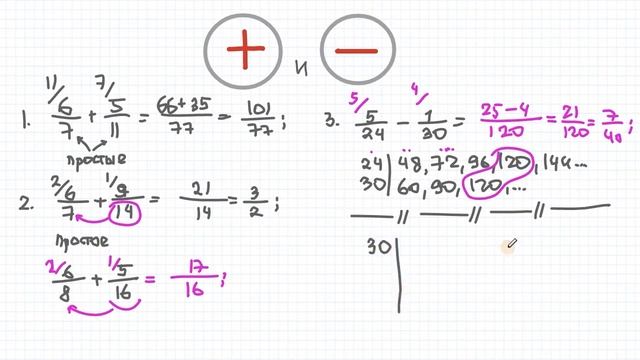 + и −
1. 11/ 6/7 + 7/ 5/11 = 66+35/77 = 101/77;
простые
2. 2/ 6/7 + 1/ 9/14 = 21/14 = 3/2;
Простое
2/ 6/8 + 1/ 5/16 = 17/16;
3. 5/ 5/24 − 4/ 1/30 = 25−4/120 = 21/120 = 7/40;
24 | 48, 72, 96, 120, 144...
30 | 60, 90, 120, ...
— // — // — // —
30